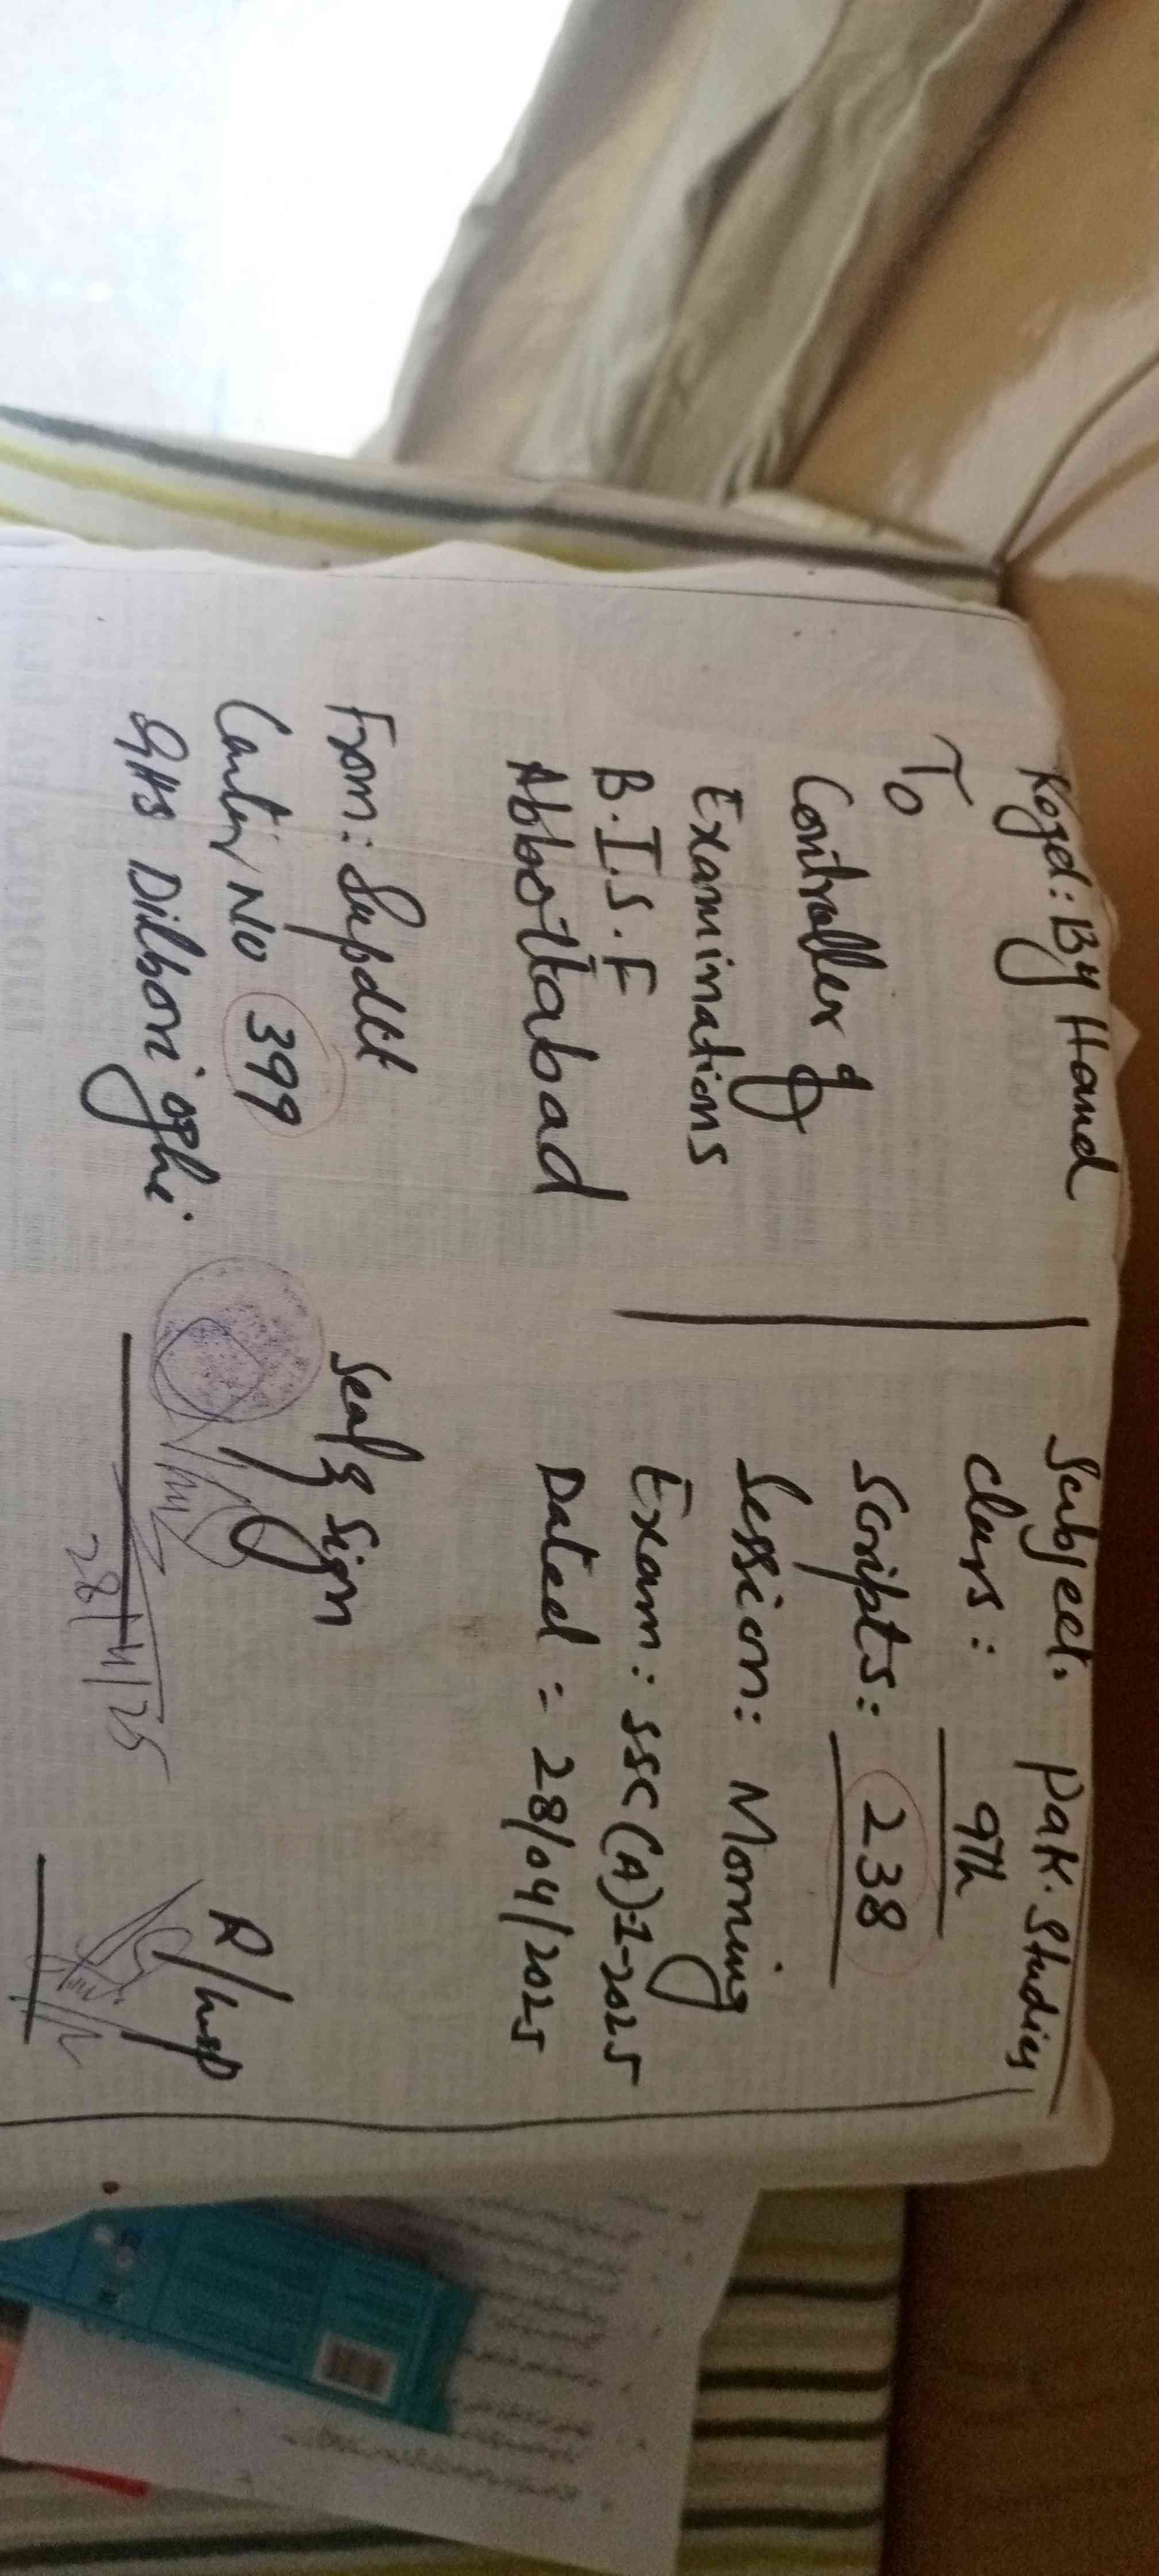 Regd: By Hand
To
Controller of
Examinations
B.I.S.E
Abbottabad
From: Supdtt
Center No 399
GHS Dilbori oghi
Subject. Pak. Studies
Class: 9th
Scripts: 238
Session: Morning
Exam: SSC (A)-1-2025
Dated = 28/04/2025
Seal & Sign
28/4/25
R/Insp